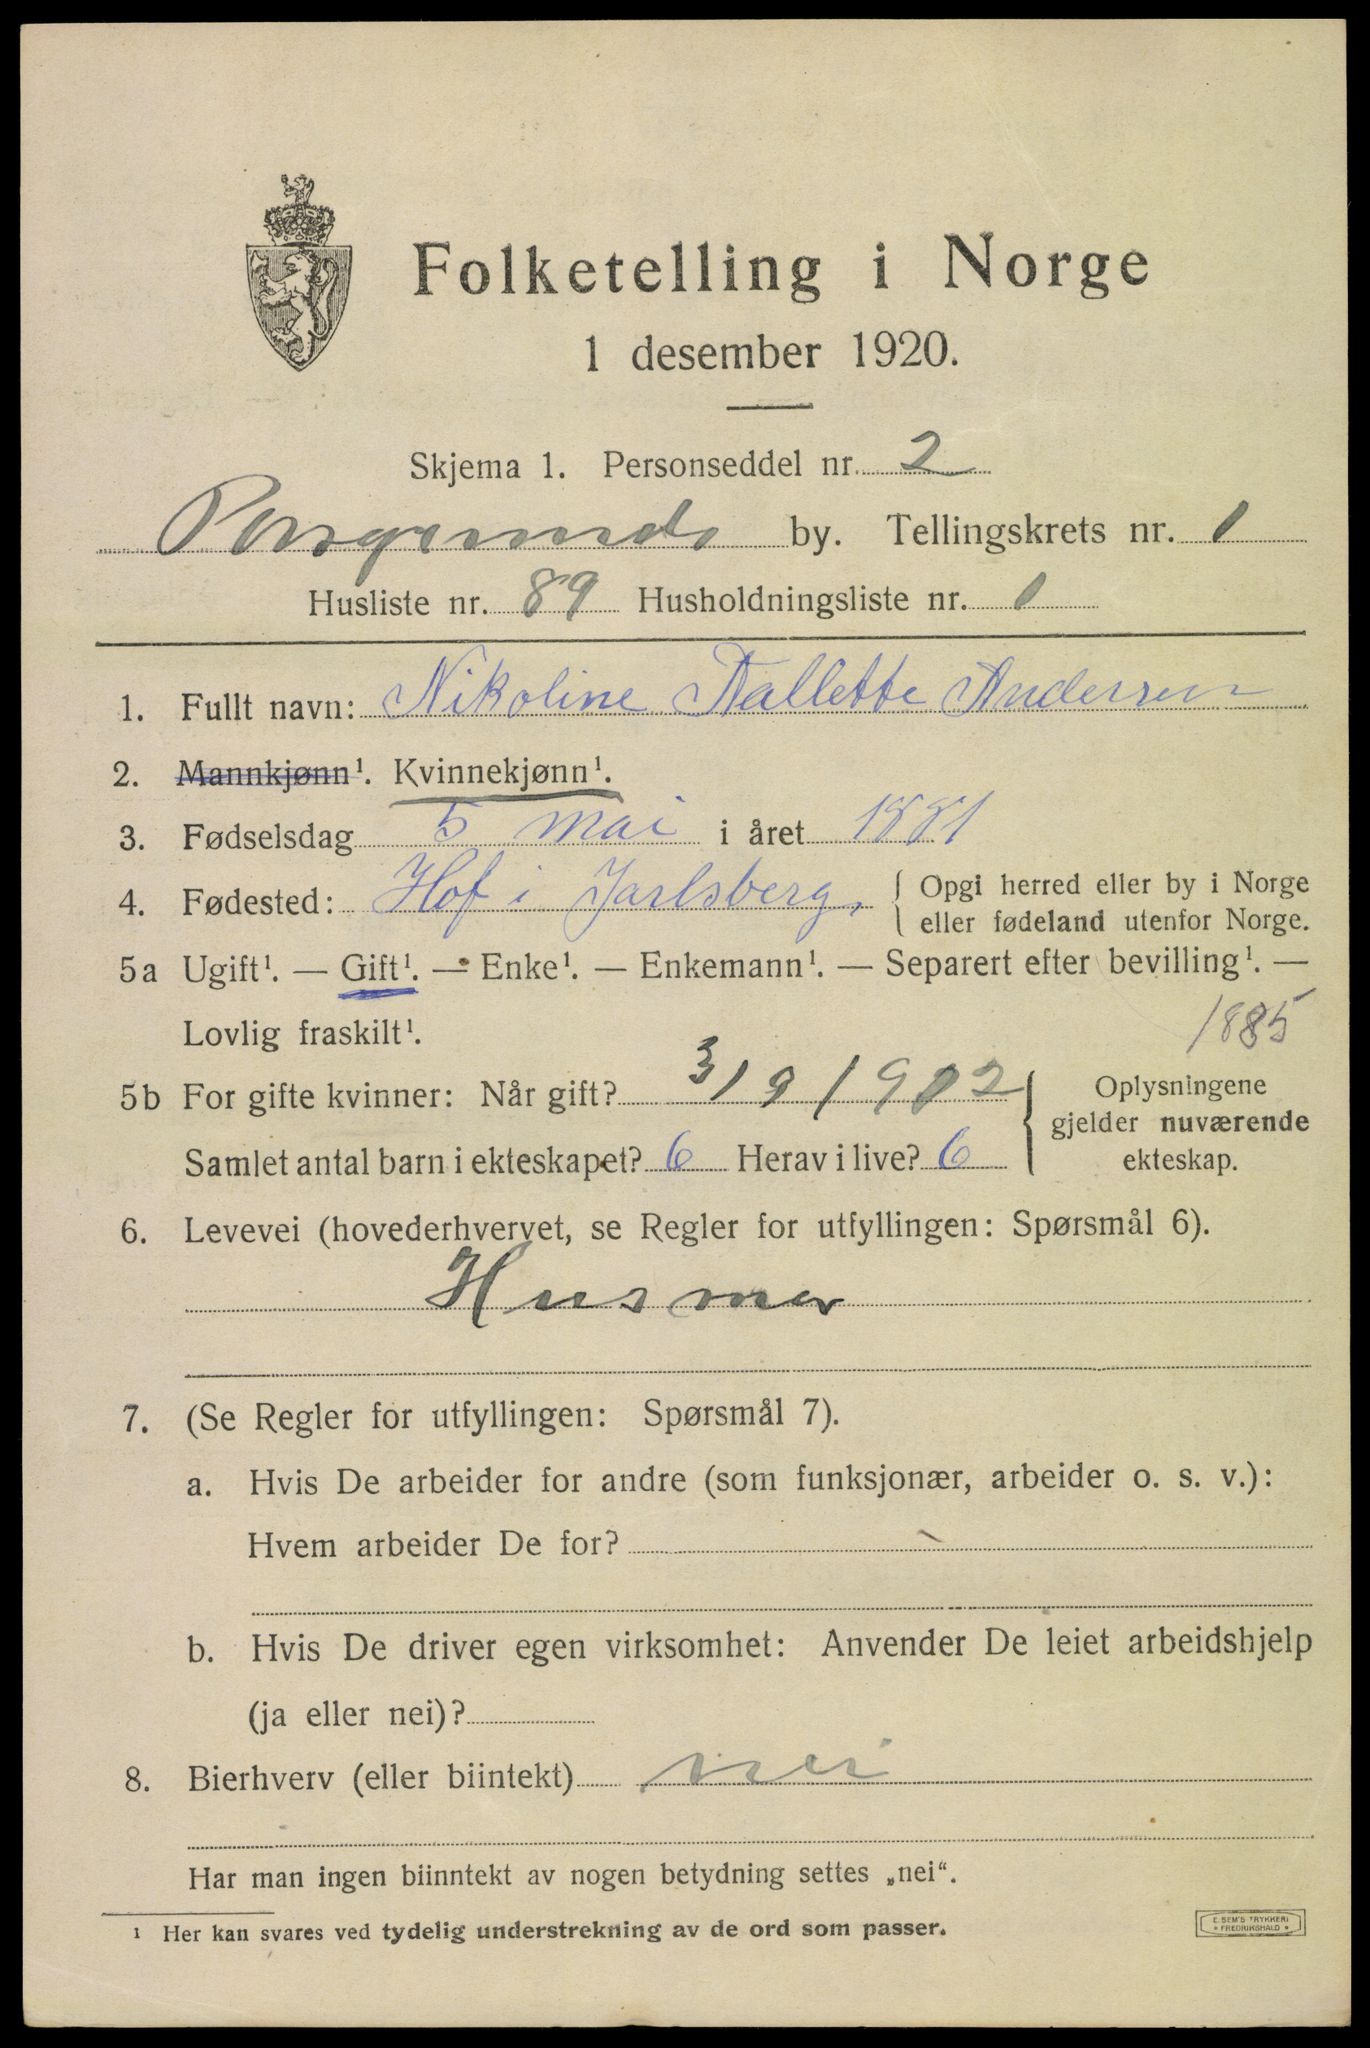 Folketelling i Norge
1 desember 1920.
Skjema 1. Personseddel nr. 2
Porsgrunds by. Tellingskrets nr. 1
Husliste nr. 89 Husholdningsliste nr. 1
1. Fullt navn: Nikoline Andersen
2. Mannkjønn¹. Kvinnekjønn¹.
3. Fødselsdag 5 mai i året 1881
4. Fødested: Hof i Jarlsberg. { Opgi herred eller by i Norge
eller fødeland utenfor Norge.
5a Ugift¹. — Gift¹. — Enke¹. — Enkemann¹. — Separert efter bevilling¹. —
Lovlig fraskilt¹. 1885
5b For gifte kvinner: Når gift? 3/9 1902 { Oplysningene
gjelder nuværende
Samlet antal barn i ekteskapet? 6 Herav i live? 6 ekteskap.
6. Levevei (hovederhvervet, se Regler for utfyllingen: Spørsmål 6).
Husmor
7. (Se Regler for utfyllingen: Spørsmål 7).
a. Hvis De arbeider for andre (som funksjonær, arbeider o. s. v.):
Hvem arbeider De for?
b. Hvis De driver egen virksomhet: Anvender De leiet arbeidshjelp
(ja eller nei)?
8. Bierhverv (eller biintekt) nei
Har man ingen biinntekt av nogen betydning settes „nei“.
¹ Her kan svares ved tydelig understrekning av de ord som passer.
E. SEM'S TRYKKERI
* FREDRIKSHALD *